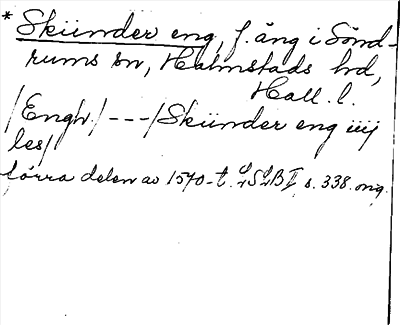 * Skünder eng, f. äng i Sönd-
rums sn, Halmstads hd,
Hall. l.
/Engh./ - - - / Skünder eng iiij
les/
förra delen av 1570-t. S B II s. 338. orig.